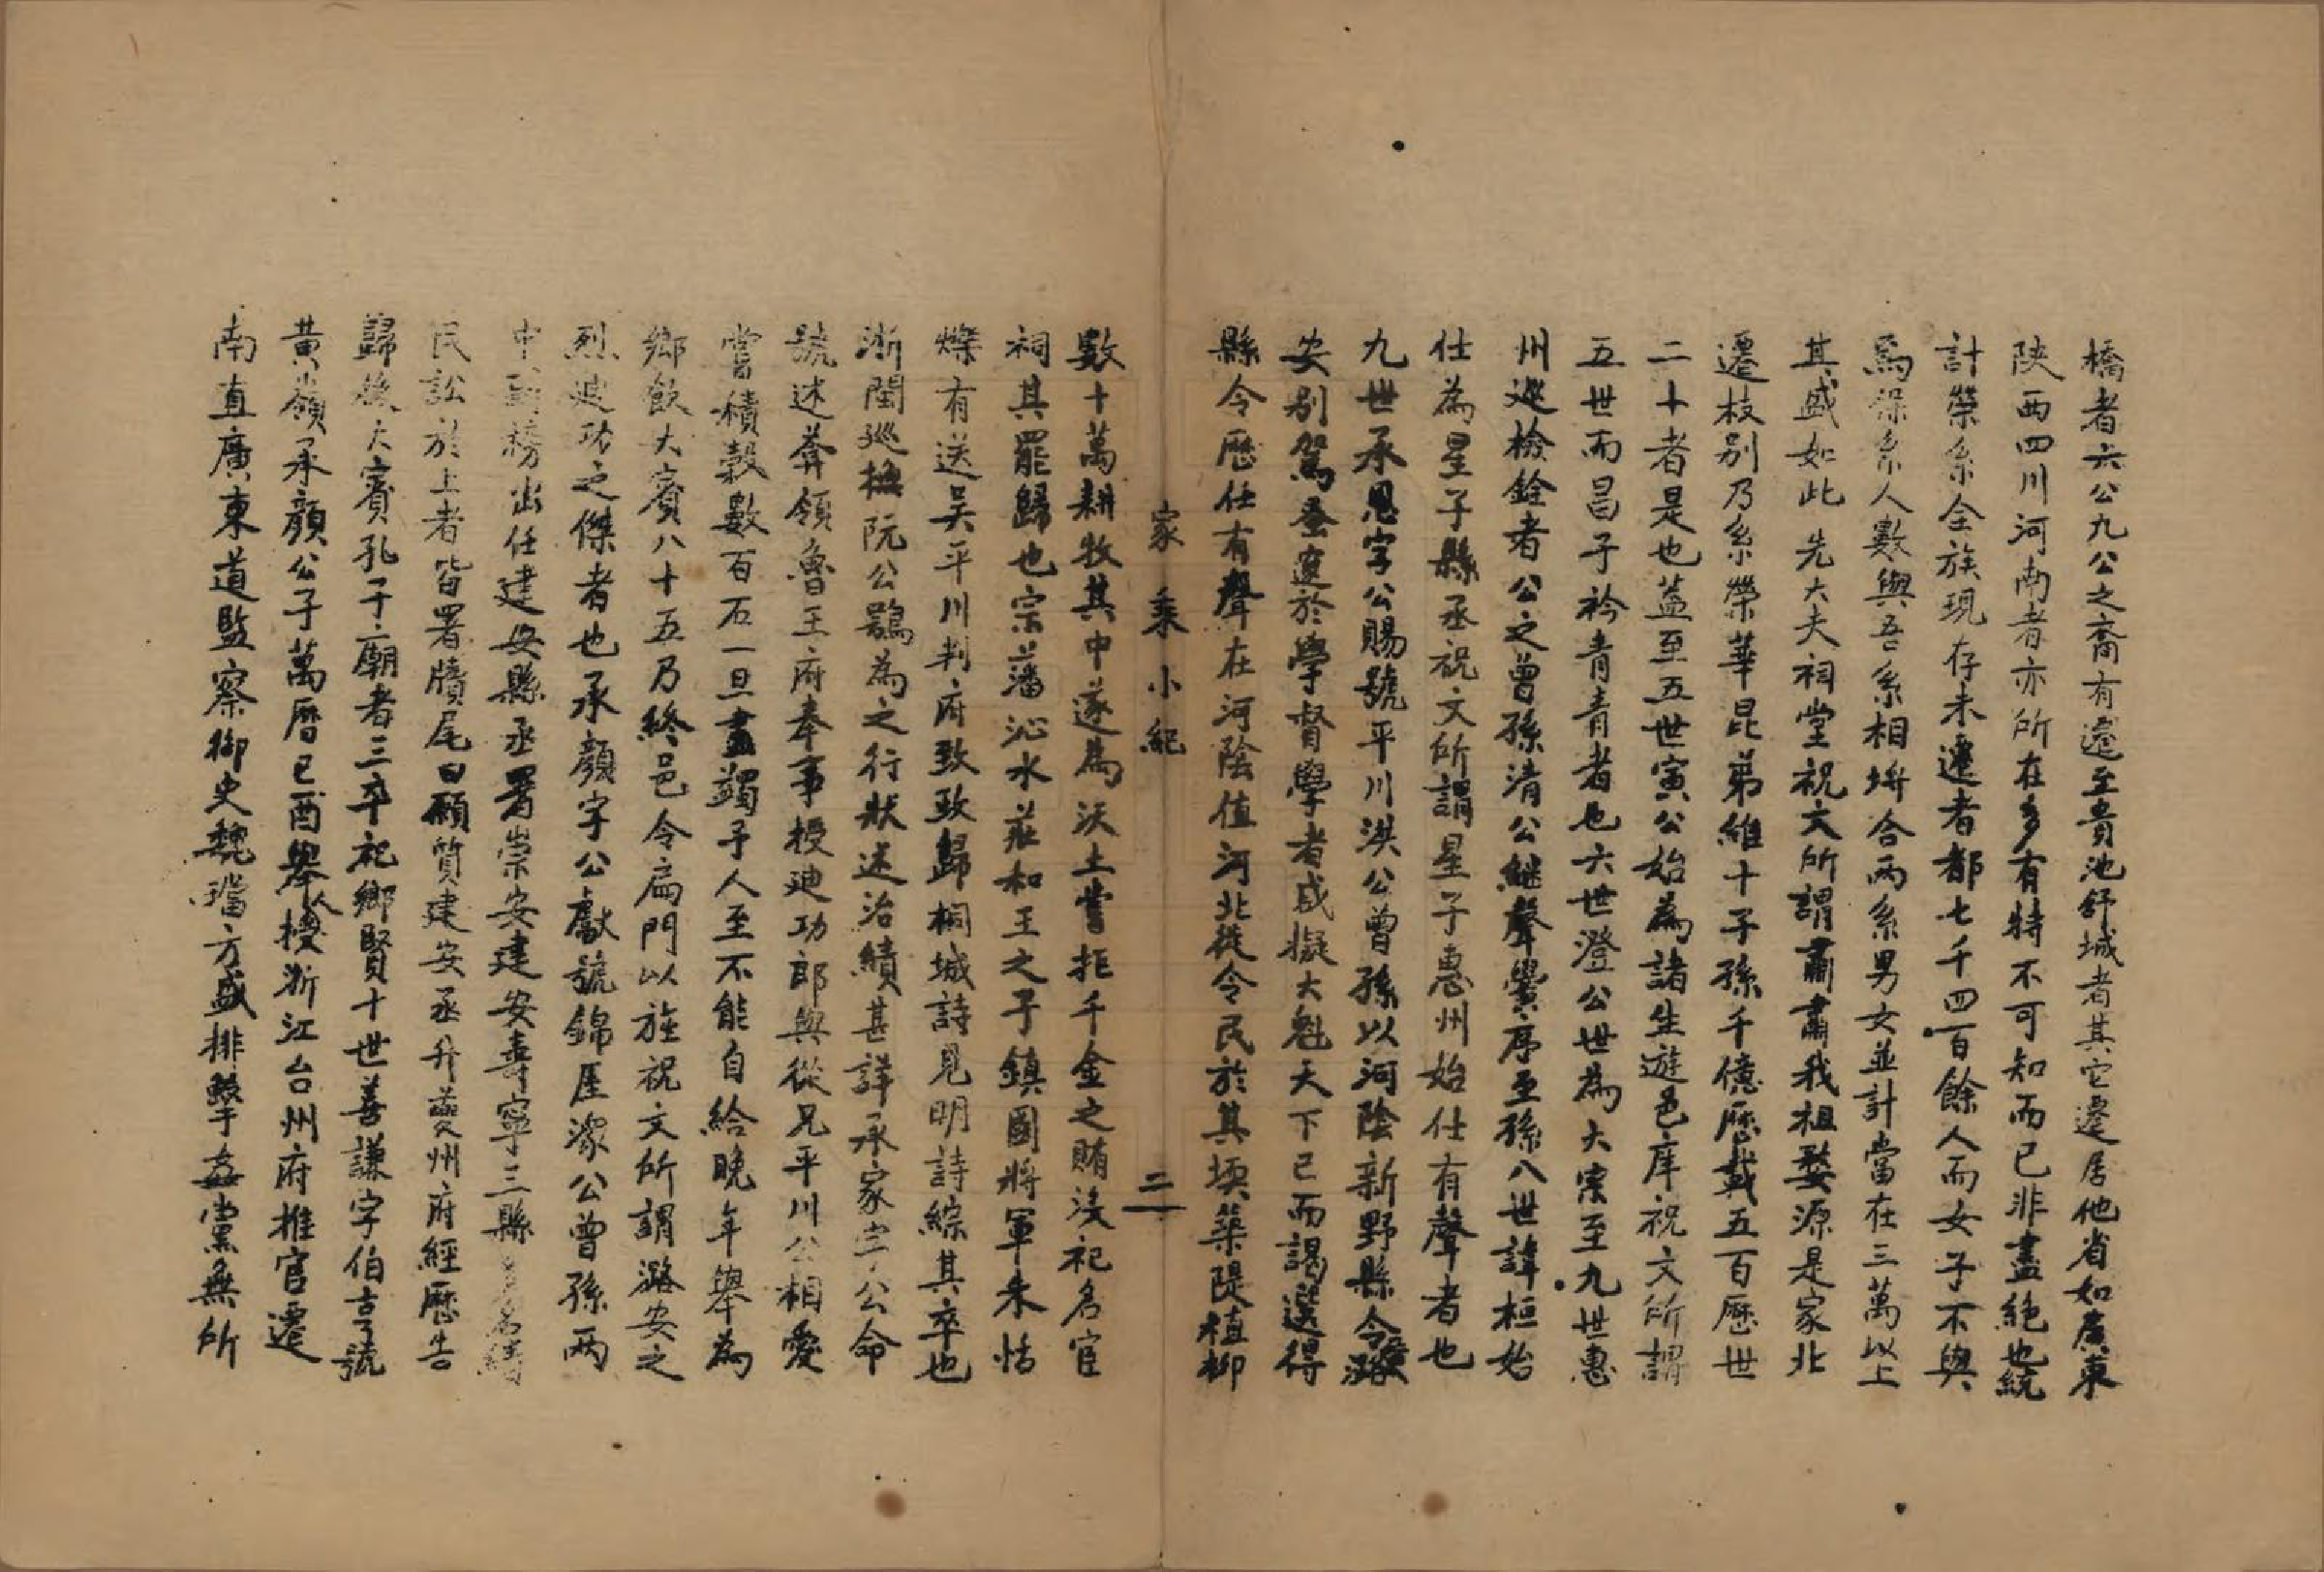 橋者六公九公之裔有遷至貴池舒城者其它遷居他省如廣東
陝西四川河南者亦所在多有特不可知而已非盡絕也統
計榮系全族現存未遷者都七千四百餘人而女子不與
焉保系人數與吾系相垺合兩系男女並計當在三萬以上
其盛如此先大夫祠堂祝文所謂肅肅我祖婺源是家北
遷枝別乃系榮華昆弟維十子孫千億歷載五百歷世
二十者是也蓋至五世寅公始為諸生遊邑庠祝文所謂
五世而昌子衿青青者也六世澄公世為大宗至九世惠
州巡檢銓者公之曾孫清公繼聲黌序至孫八世諱桓始
仕為星子縣丞祝文所謂星子惠州始仕有聲者也
九世承恩字公賜號平川洪公曾孫以河陰新野縣令潞
安別駕蚤遊於學督學者咸擬大魁天下已而謁選得
縣令歷仕有聲在河陰值河北徙令民於其堧築隄植柳
家乘小紀
二
數十萬耕牧其中遂為沃土嘗拒千金之賄沒祀名宦
祠其罷歸也宗藩沁水莊和王之子鎮國將軍朱恬
爍有送吳平川判府致政歸桐城詩見明詩綜其卒也
浙閩巡撫阮公鶚為之行狀述治績甚詳承家字公命
號述葊領魯王府奉事授廸功郎與從兄平川公相愛
嘗積穀數百石一旦盡蠲予人至不能自給晚年舉為
鄉飲大賓八十五乃終邑令扁門以旌祝文所謂潞安之
烈廸功之傑者也承顏字公獻號錦厓濠公曾孫兩
中副榜出任建安縣丞署崇安建安壽寧三縣名績
民訟於上者皆署牘尾曰願質建安丞升夔州府經歷告
歸後大賓孔子廟者三卒祀鄉賢十世善謙字伯亨號
黃嶺承顏公子萬曆己酉舉人授浙江台州府推官遷
南直廣東道監察御史魏璫方盛排擊姦黨無所